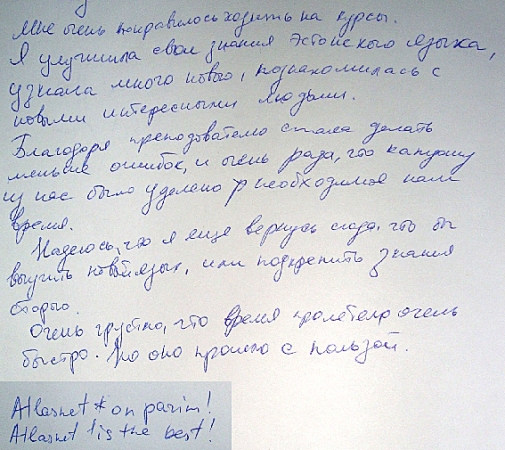 Мне очень понравилось ходить на курсы.
Я улучшила свои знания Эстонского языка,
узнала много нового, познакомилась с
новыми интересными людьми.
Благодаря преподавателю стала делать
меньше ошибок, и очень рада, что каждому
из нас было уделено необходимое нам
время.
Надеюсь, что я еще вернусь сюда, что бы
выучить новый язык, или подкрепить знания
старого.
Очень грустно, что время пролетело очень
быстро. Но оно прошло с пользой.
Atlasnet * on parim!
Atlasnet is the best!